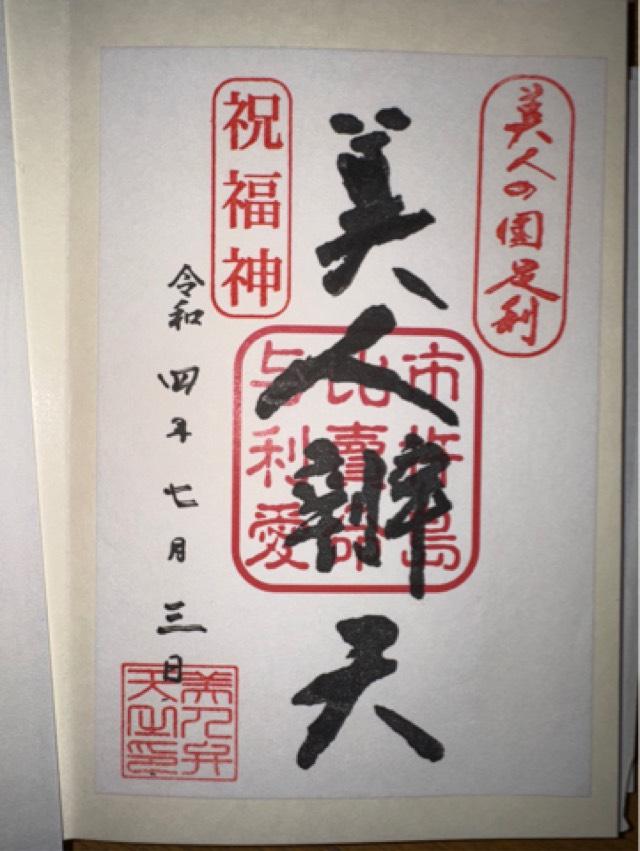 美人の国足利
美人辨天
市杵島
比賣命
与利愛
祝福神
令和四年七月三日
美人弁
天之印